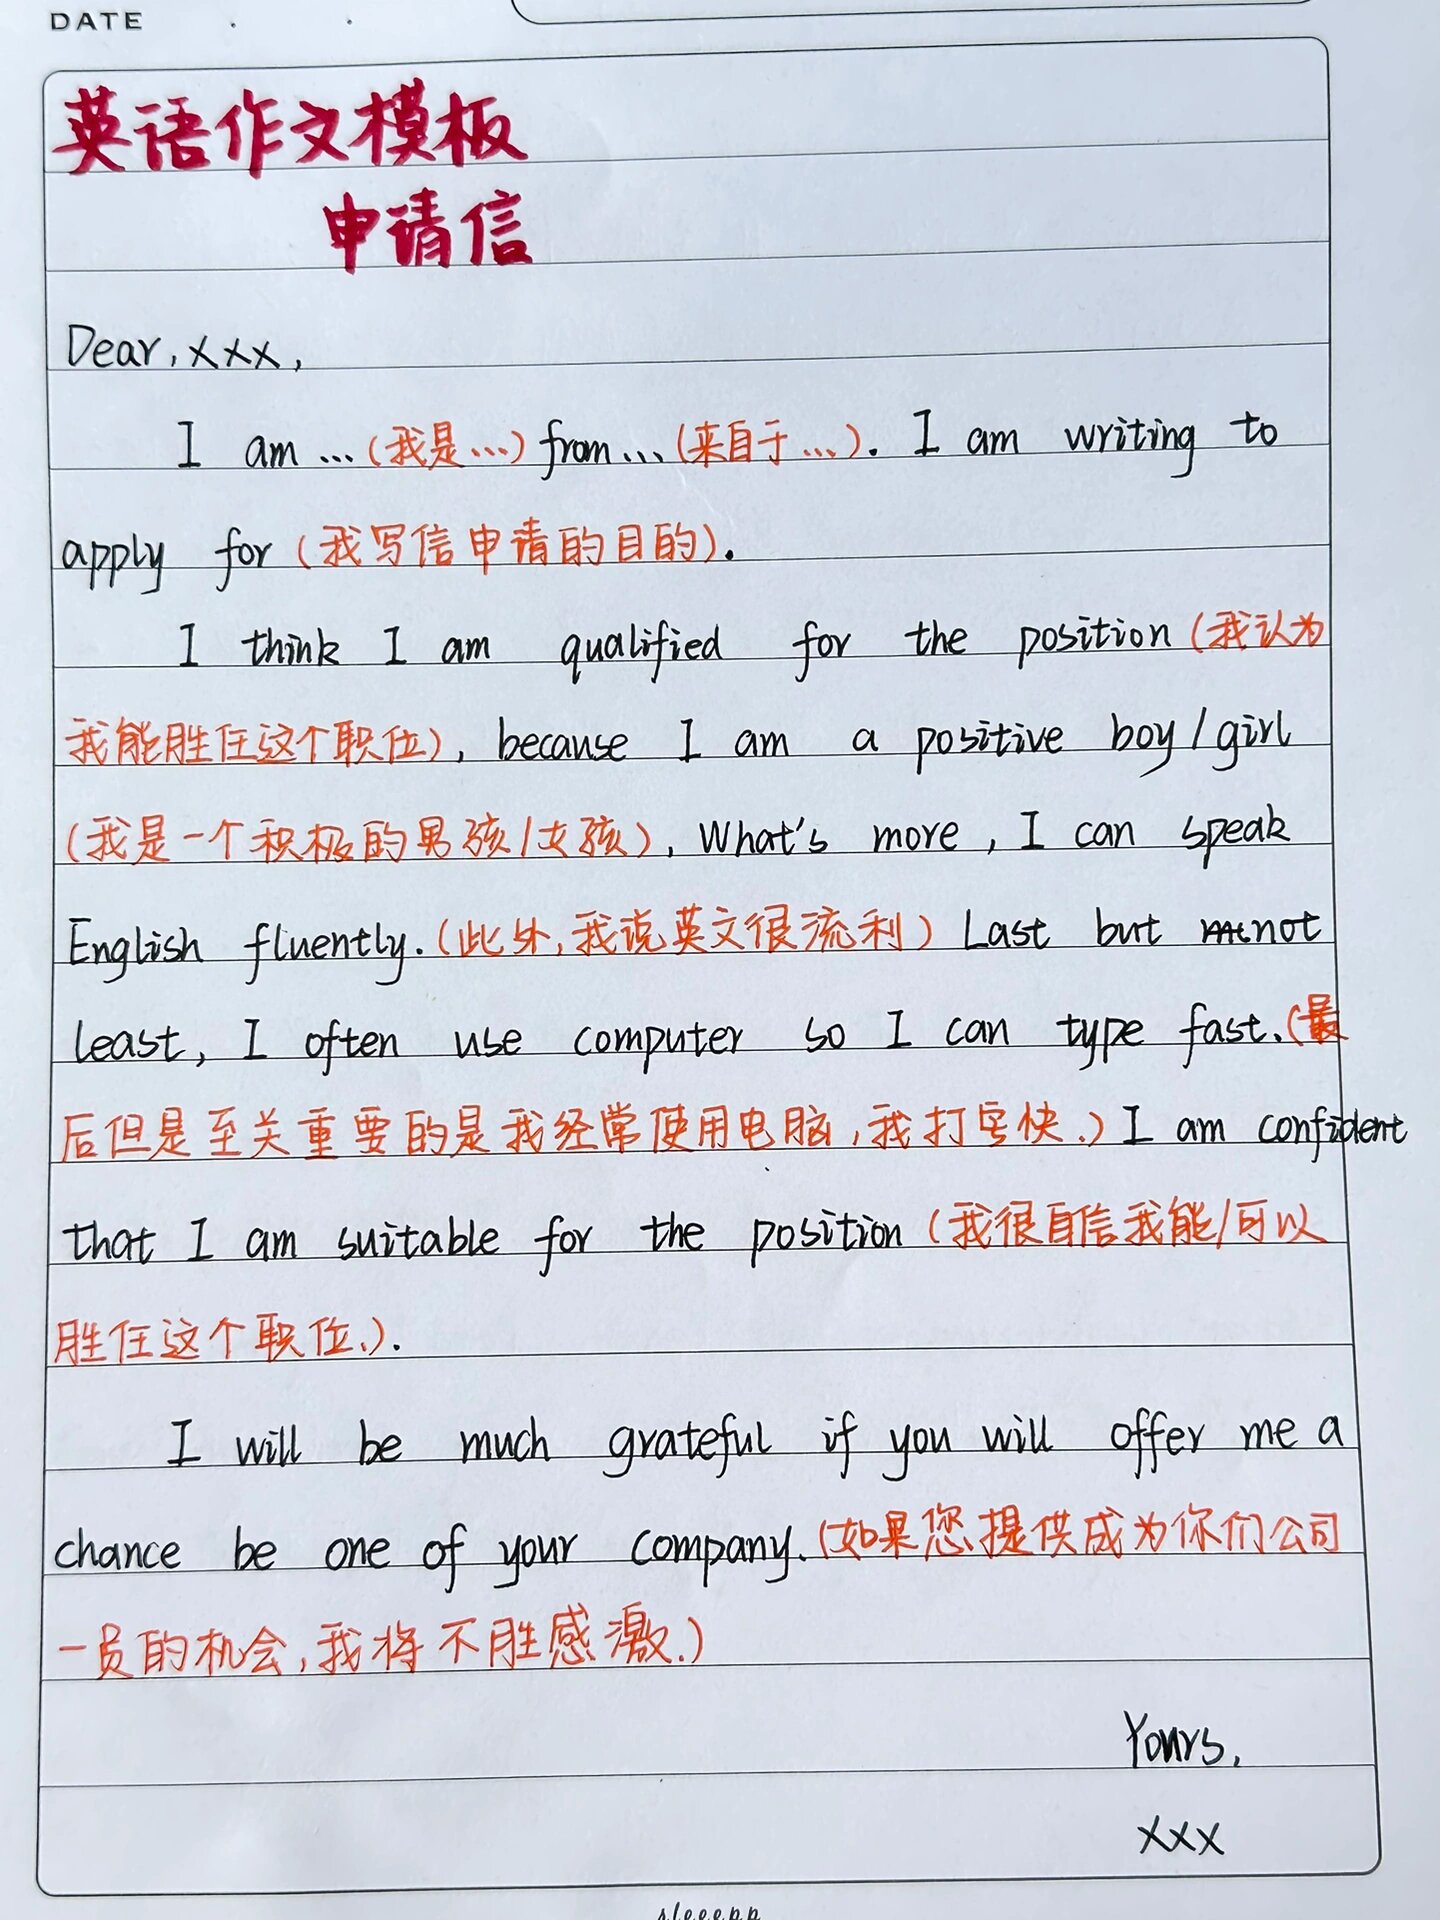 DATE
英语作文模板
申请信
Dear, xxx,
I am ...(我是...) from...(来自于...). I am writing to
apply for (我写信申请的目的).
I think I am qualified for the position (我认为
我能胜任这个职位), because I am a positive boy/girl
(我是一个积极的男孩/女孩), What's more, I can speak
English fluently.(此外,我说英文很流利) Last but not
least, I often use computer so I can type fast.(最
后但是至关重要的是我经常使用电脑,我打字快.) I am confident
that I am suitable for the position (我很自信我能/可以
胜任这个职位.).
I will be much grateful if you will offer me a
chance be one of your company.(如果您提供成为你们公司
一员的机会,我将不胜感激.)
Yours,
xxx